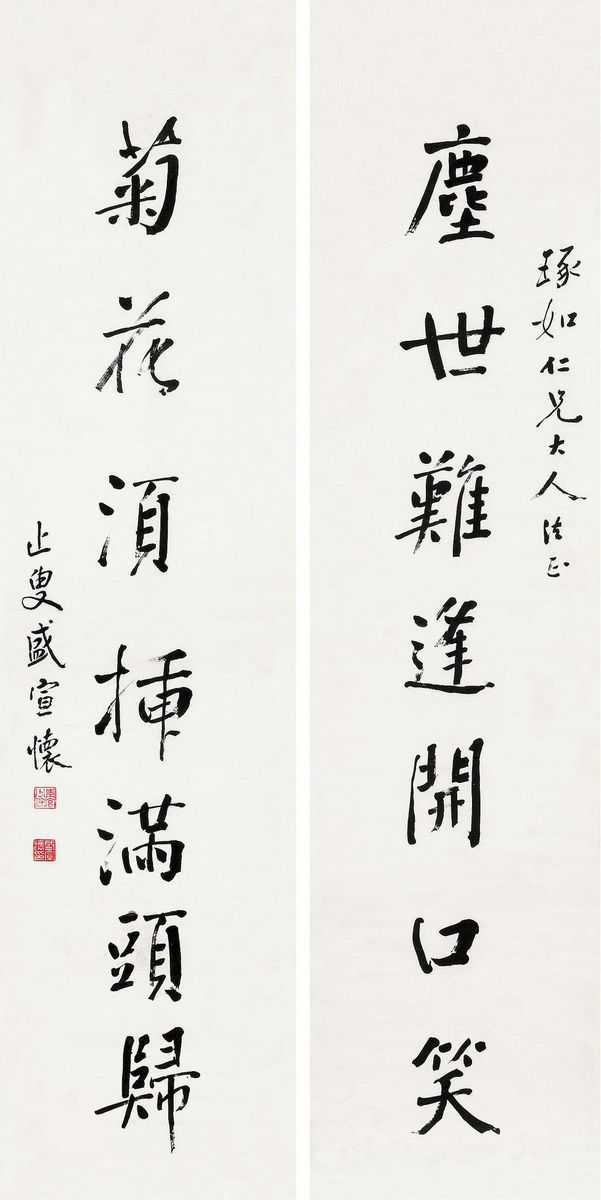 琢如仁兄大人法正
塵世難逢開口笑
菊花須插滿頭歸
止叟盛宣懷